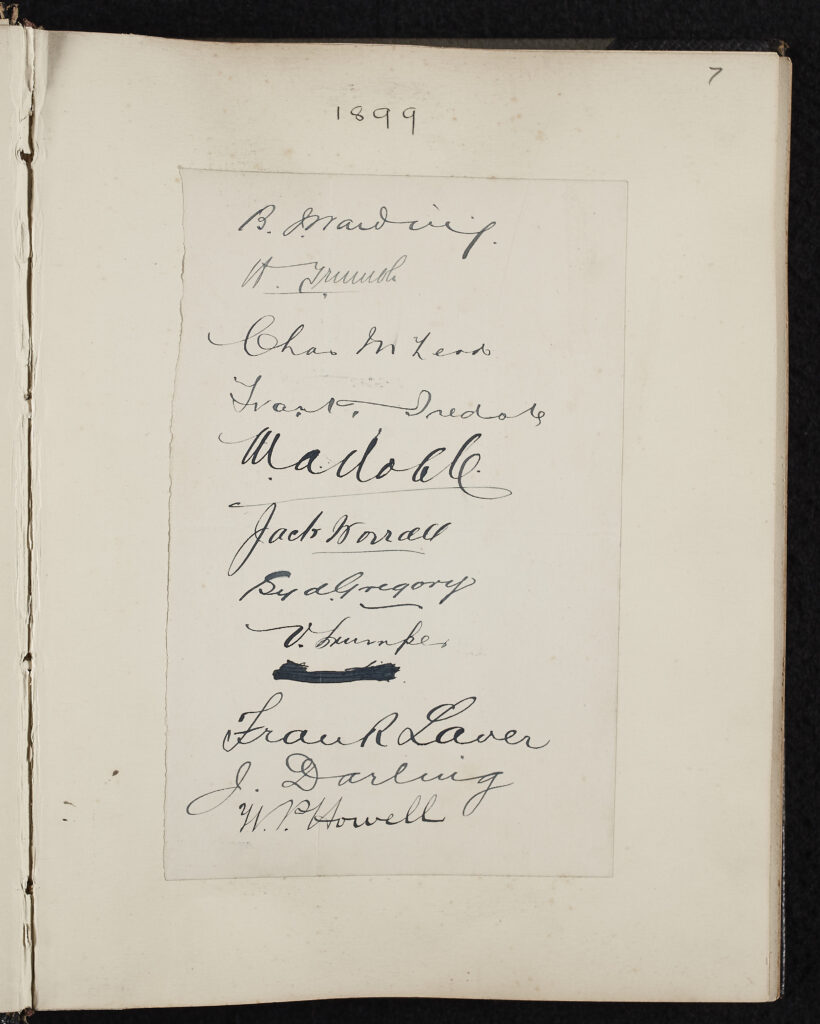 7
1899
B. J. Wardill.
H. Trumble
Chas McLeod
Frank. Iredale
M. A. Noble.
Jack Worrall
Syd. Gregory
V. Trumper
Frank Laver
J. Darling
W. P. Howell